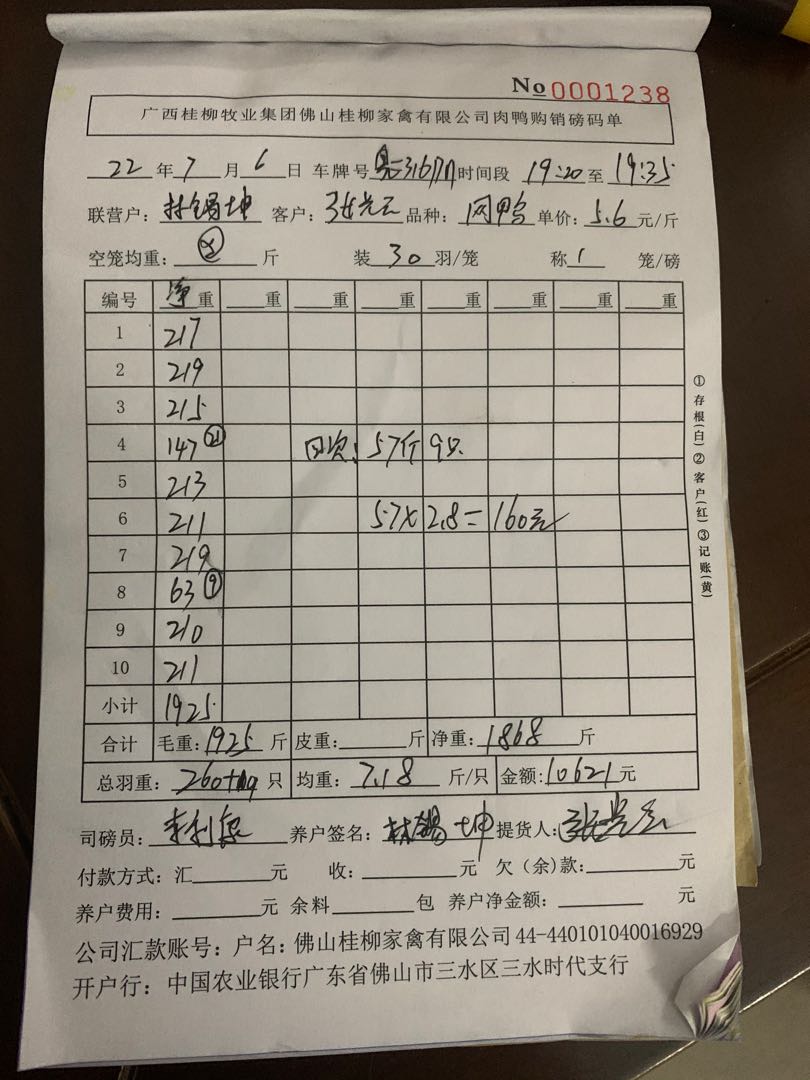 No 0001238
广西桂柳牧业集团佛山桂柳家禽有限公司肉鸭购销磅码单
22 年 7 月 6 日 车牌号 时间段 19:20 至 19:35
联营户: 林锡坤 客户: 张 品种: 肉鸭 单价: 5.6 元/斤
空笼均重: 斤 装 30 羽/笼 称 1 笼/磅
编号 净重 重 重 重 重 重 重 重
1 217
2 219
3 215
4 147 (21) 次: 57斤 9只
5 213
6 211 57×2.8=160元
7 219
8 63 (9)
9 210
10 211
小计 1925
合计 毛重: 1925 斤 皮重: 斤 净重: 1868 斤
总羽重: 260 只 均重: 7.18 斤/只 金额: 10621 元
司磅员: 李利 养户签名: 林锡坤 提货人: 张
付款方式: 汇 元 收: 元 欠(余)款: 元
养户费用: 元 余料 包 养户净金额: 元
公司汇款账号: 户名: 佛山桂柳家禽有限公司 44-440101040016929
开户行: 中国农业银行广东省佛山市三水区三水时代支行
①存根(白)②客户(红)③记账(黄)